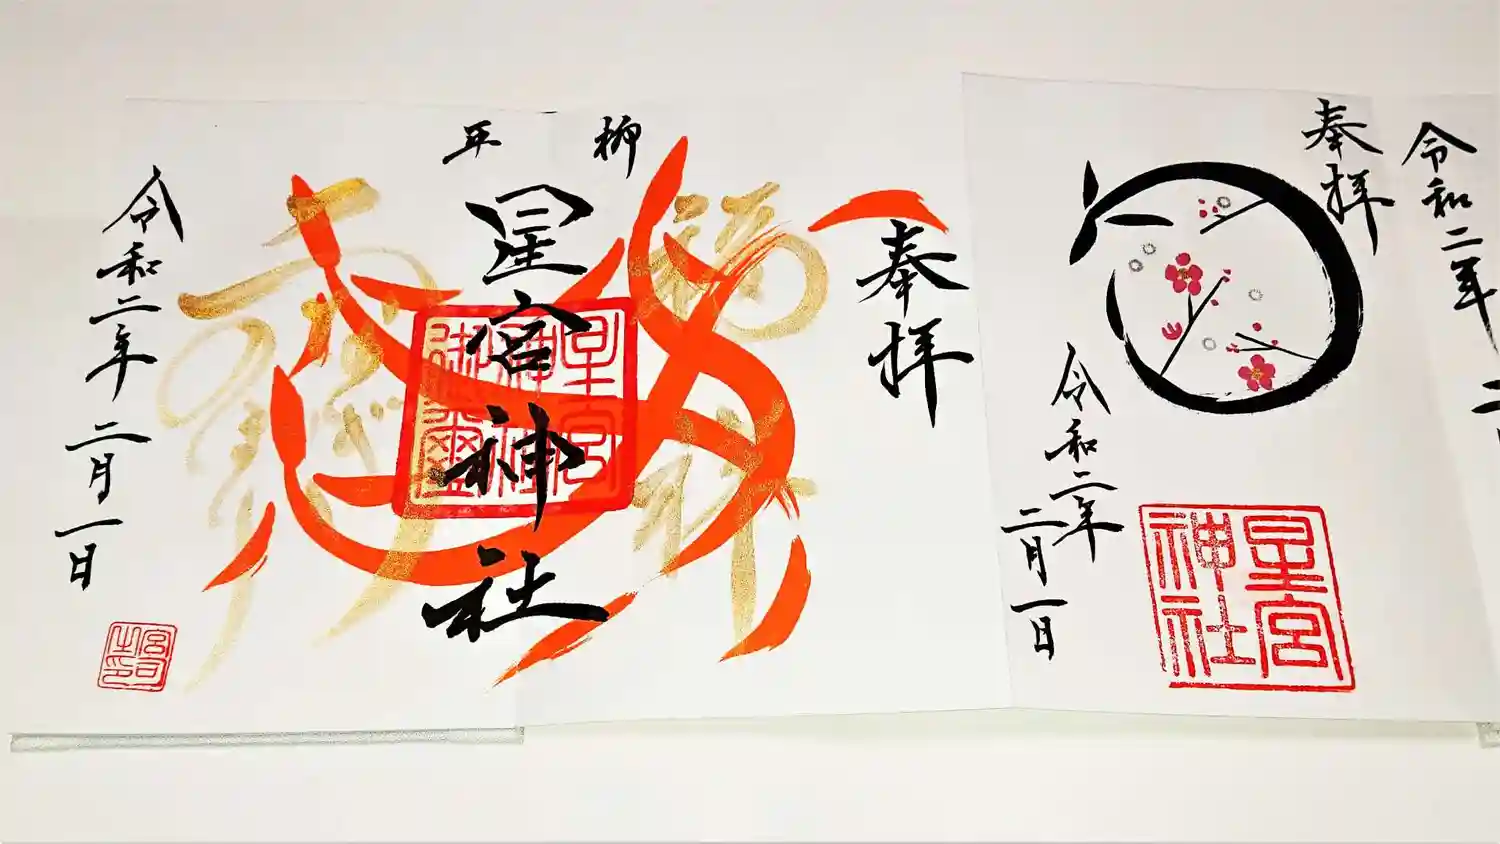 令和二年
奉拝
星宮
神社
令和二年
二月一日
奉拝
平柳
星宮神社
星宮
神社
御璽
令和二年
二月一日
宮司
之印